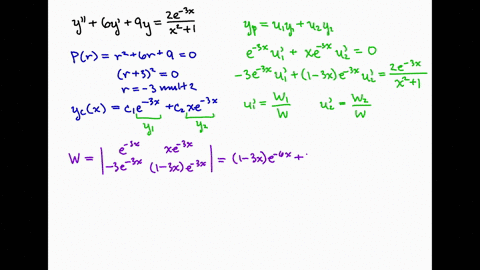 y'' + 6y' + 9y = 2e^{-3x}/(x²+1)
P(r) = r² + 6r + 9 = 0
(r+3)² = 0
r = -3 mult 2
y_c(x) = c₁e^{-3x} + c₂xe^{-3x}
y₁ y₂
y_p = u₁y₁ + u₂y₂
e^{-3x}u₁' + xe^{-3x}u₂' = 0
-3e^{-3x}u₁' + (1-3x)e^{-3x}u₂' = 2e^{-3x}/(x²+1)
u₁' = W₁/W u₂' = W₂/W
W = | e^{-3x} xe^{-3x} |
| -3e^{-3x} (1-3x)e^{-3x} | = (1-3x)e^{-6x} +